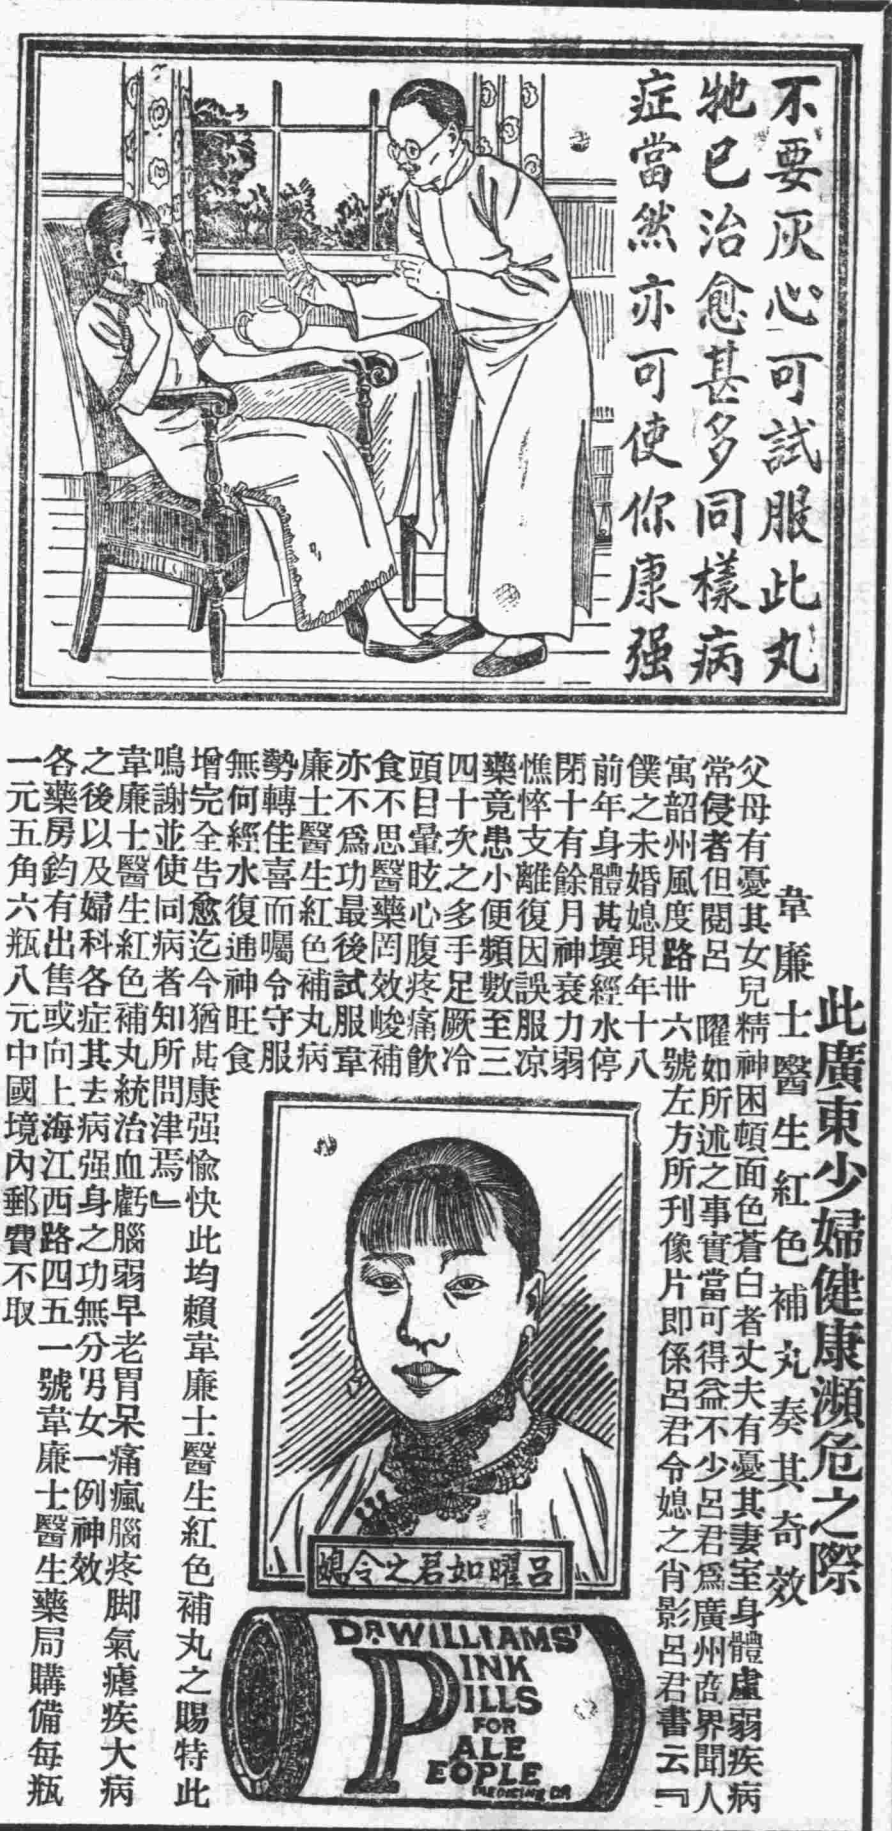 不要灰心可試服此丸
牠已治愈甚多同樣病
症當然亦可使你康强
此廣東少婦健康瀕危之際
韋廉士醫生紅色補丸奏其奇效
父母有憂其女兒精神困頓面色蒼白者丈夫有憂其妻室身體虛弱疾病
常侵者但閱呂 曜如所述之事實當可得益不少呂君爲廣州商界聞人
寓韶州風度路卅六號左方所刊像片即係呂君令媳之肖影呂君書云『
僕之未婚媳現年十八
前年身體甚壞經水停
閉十有餘月神衰力弱
憔悴支離復因誤服凉
藥竟患小便頻數至三
四十次之多手足厥冷
頭目暈眩心腹疼痛飲
食不思醫藥罔效峻補
亦不爲功最後試服韋
廉士醫生紅色補丸病
勢轉佳喜而囑令守服
無何經水復通神旺食
增完全告愈迄今猶甚康强愉快此均賴韋廉士醫生紅色補丸之賜特此
鳴謝並使同病者知所問津焉』
韋廉士醫生紅色補丸統治血虧腦弱早老胃呆痛瘋腦疼脚氣瘧疾大病
之後以及婦科各症其去病强身之功無分男女一例神效
各藥房鈞有出售或向上海江西路四五一號韋廉士醫生藥局購備每瓶
一元五角六瓶八元中國境內郵費不取
呂曜如君之令媳
DR. WILLIAMS'
PINK
PILLS
FOR
PALE
PEOPLE
MEDICINE CO